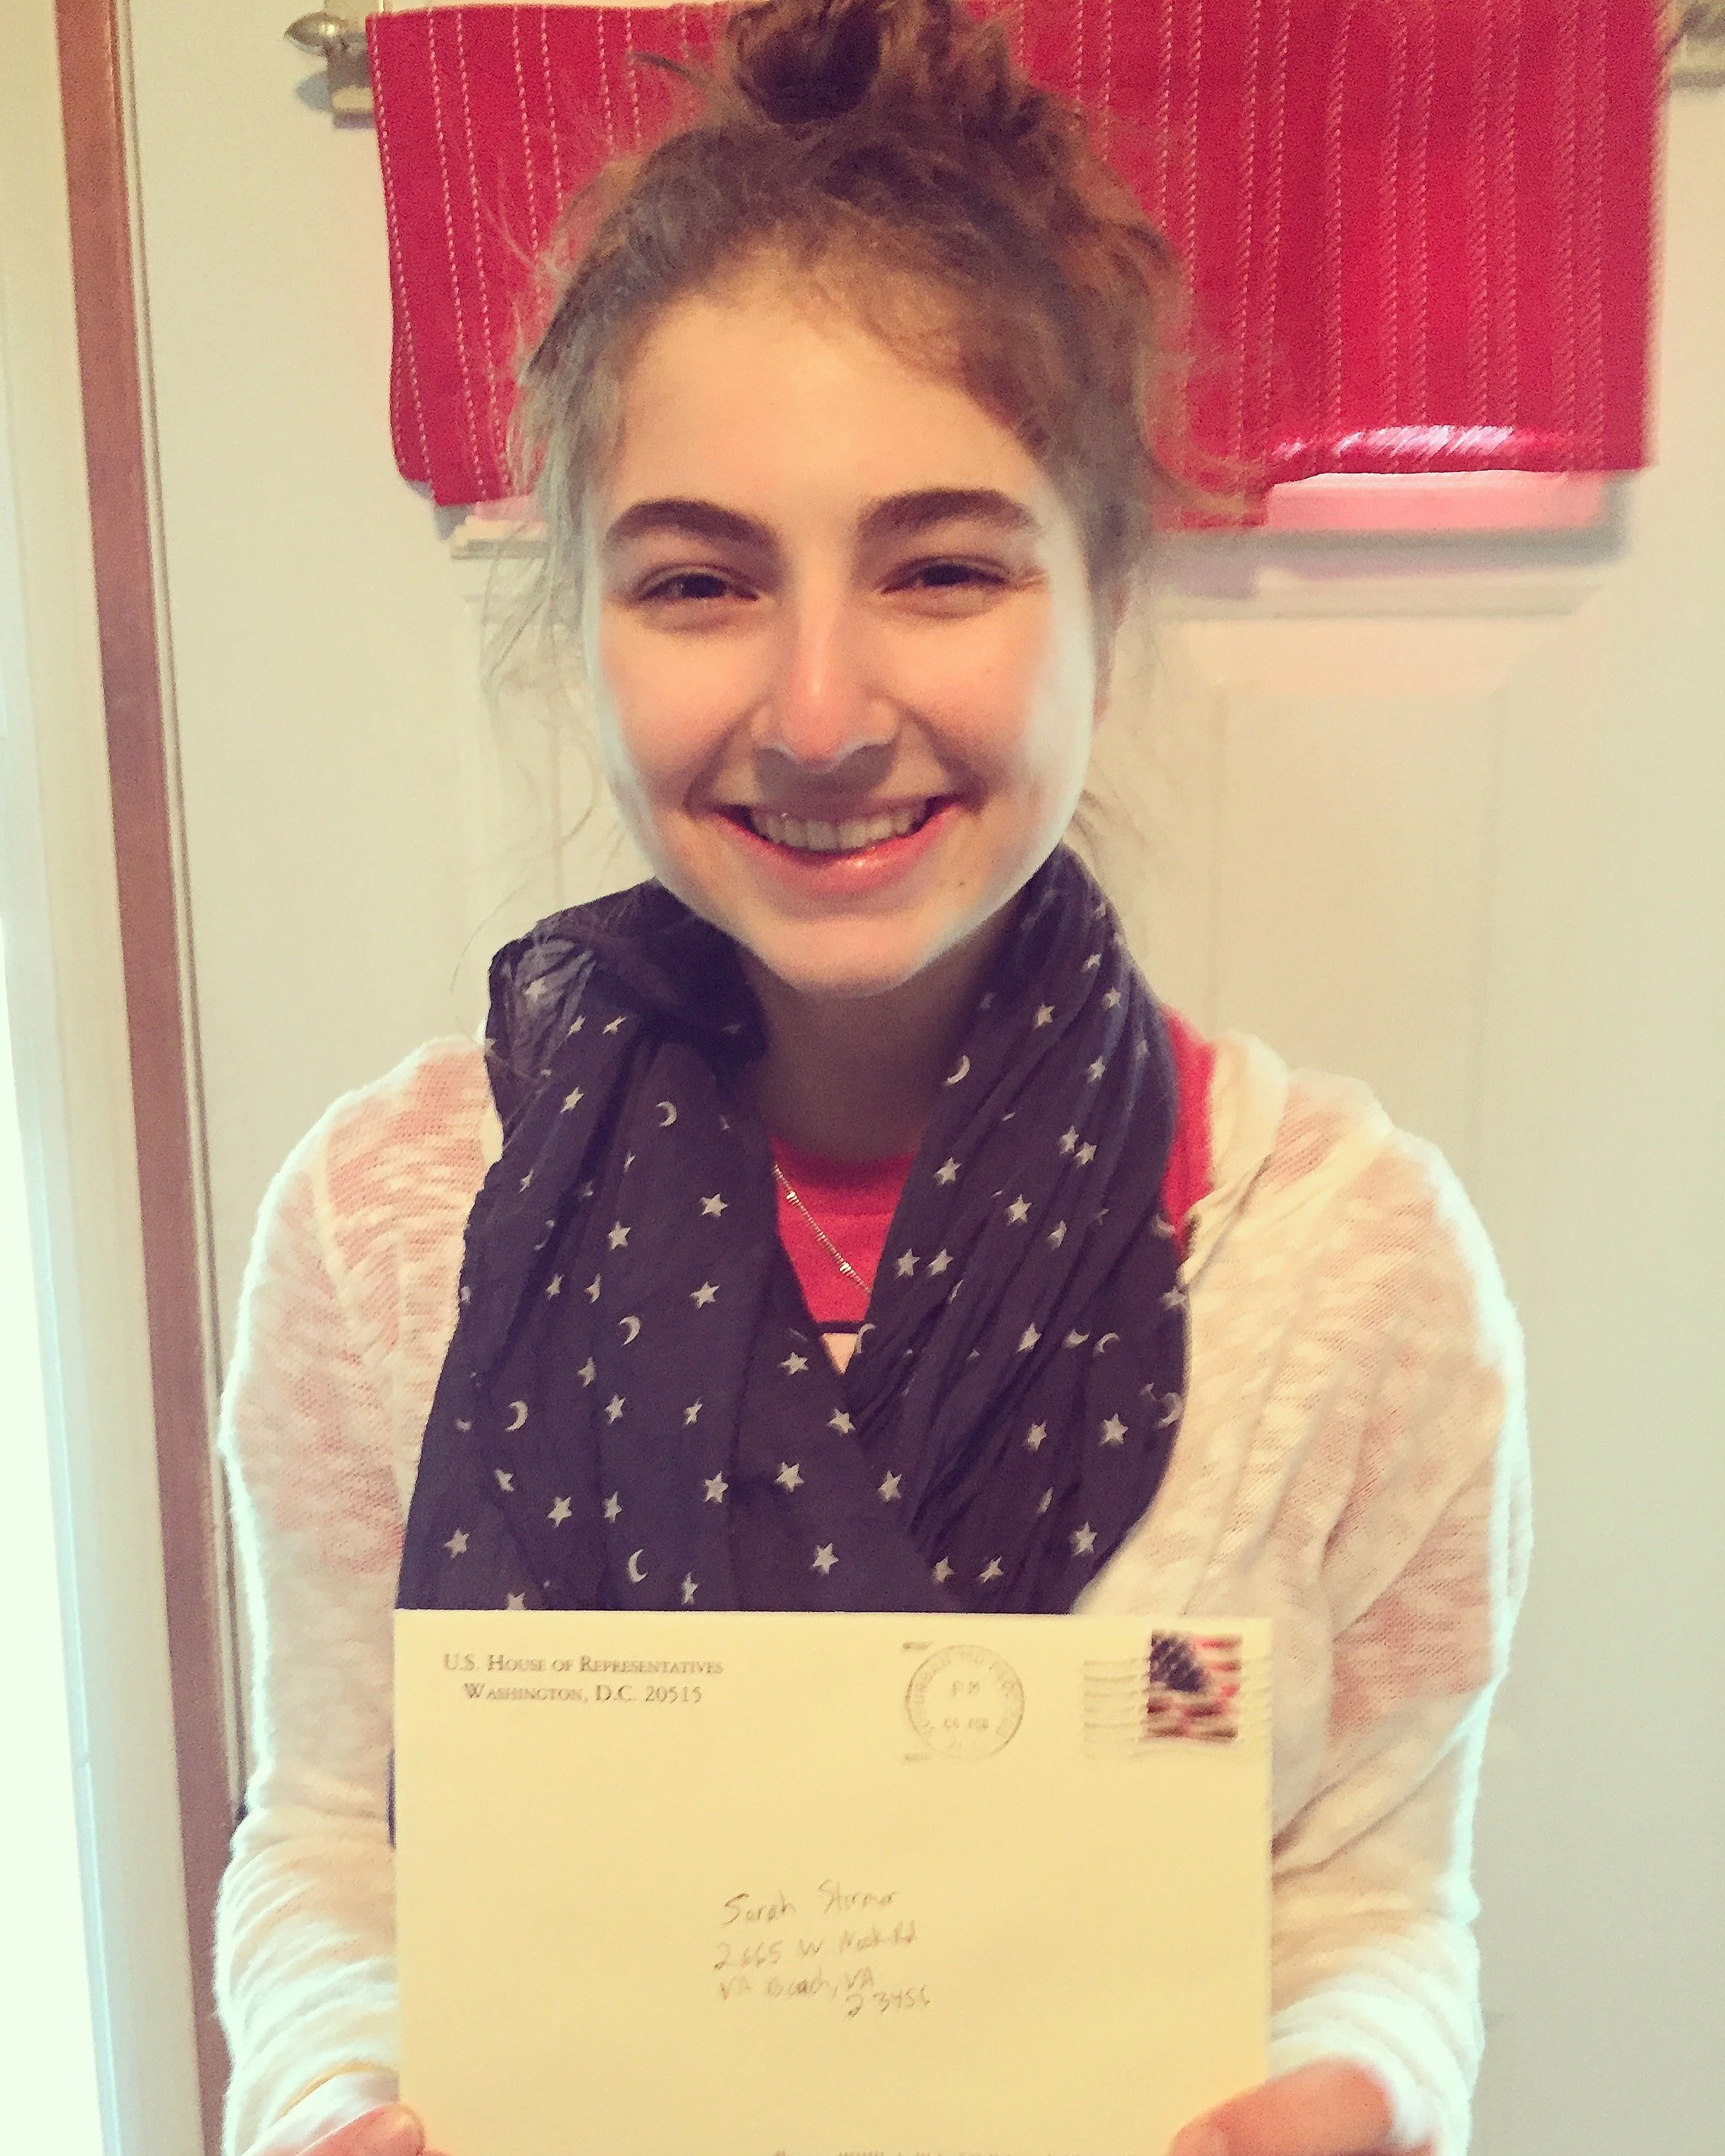 U.S. House of Representatives
Washington, D.C. 20515
PM
Sarah Stormer
2665 W. Neck Rd
VA Beach, VA
23456